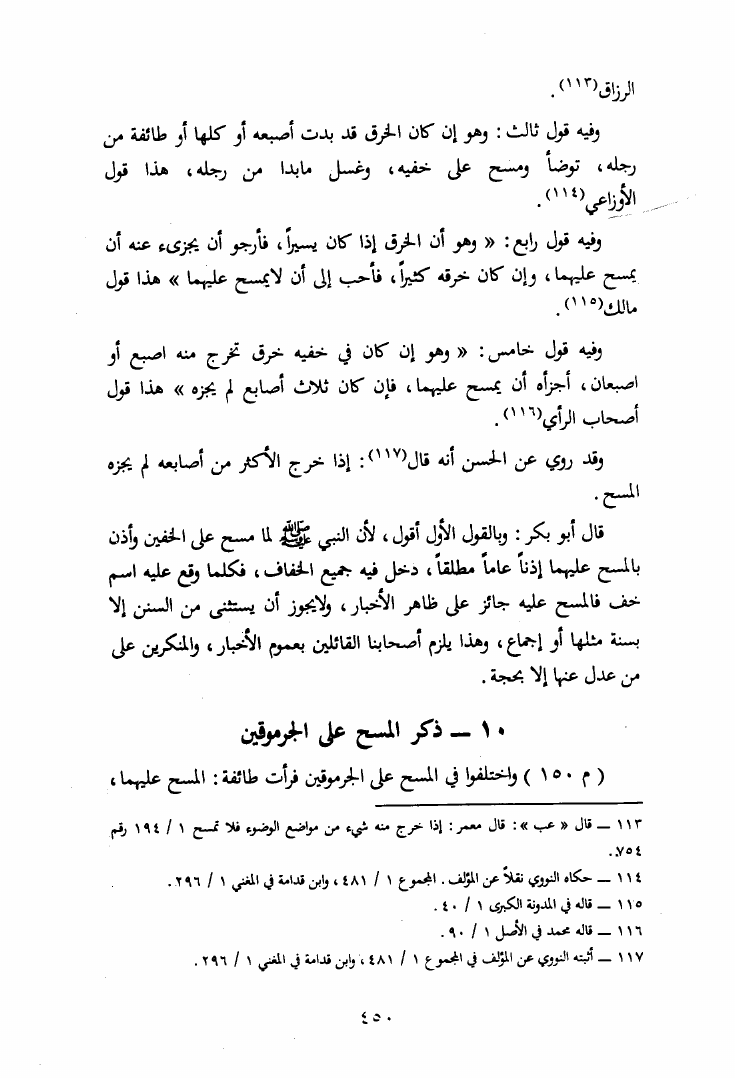 الرزاق(١١٣).
وفيه قول ثالث : وهو إن كان الخرق قد بدت أصبعه أو كلها أو طائفة من
رجله، توضأ ومسح على خفيه، وغسل مابدا من رجله، هذا قول
الأوزاعي(١١٤).
وفيه قول رابع: « وهو أن الخرق إذا كان يسيراً، فأرجو أن يجزىء عنه أن
يمسح عليهما، وإن كان خرقه كثيراً، فأحب إلى أن لايمسح عليهما » هذا قول
مالك(١١٥).
وفيه قول خامس: « وهو إن كان في خفيه خرق تخرج منه اصبع أو
اصبعان، أجزأه أن يمسح عليهما، فإن كان ثلاث أصابع لم يجزه » هذا قول
أصحاب الرأي(١١٦).
وقد روي عن الحسن أنه قال(١١٧): إذا خرج الأكثر من أصابعه لم يجزه
المسح.
قال أبو بكر: وبالقول الأول أقول، لأن النبي ﷺ لما مسح على الخفين وأذن
بالمسح عليهما إذناً عاماً مطلقاً، دخل فيه جميع الخفاف، فكلما وقع عليه اسم
خف فالمسح عليه جائز على ظاهر الأخبار، ولايجوز أن يستثنى من السنن إلا
بسنة مثلها أو إجماع، وهذا يلزم أصحابنا القائلين بعموم الأخبار، والمنكرين على
من عدل عنها إلا بحجة.
١٠ — ذكر المسح على الجرموقين
( م ١٥٠ ) واختلفوا في المسح على الجرموقين فرأت طائفة: المسح عليهما،
١١٣ — قال « عب »: قال معمر: إذا خرج منه شيء من مواضع الوضوء فلا تمسح ١ / ١٩٤ رقم
٧٥٤.
١١٤ — حكاه النووي نقلاً عن المؤلف. المجموع ١ / ٤٨١، وابن قدامة في المغني ١ / ٢٩٦.
١١٥ — قاله في المدونة الكبرى ١ / ٤٠.
١١٦ — قاله محمد في الأصل ١ / ٩٠.
١١٧ — أثبته النووي عن المؤلف في المجموع ١ / ٤٨١، وابن قدامة في المغني ١ / ٢٩٦.
٤٥٠